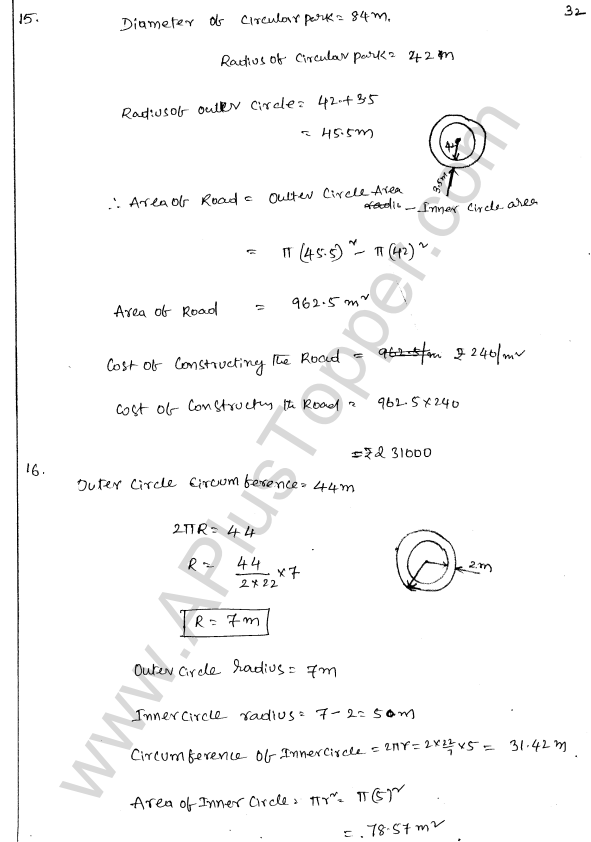 15. Diameter of circular park = 84 m. 32
Radius of circular park = 42 m
Radius of outer circle = 42 + 35
= 45.5 m
42
3.5m
∴ Area of Road = Outter Circle Area
– Inner Circle area
= π (45.5)² – π (42)²
Area of Road = 962.5 m²
Cost of Constructing the Road = 962.5/m ₹ 240/m²
Cost of Constructy the Road = 962.5 × 240
= ₹ 231000
16.
Outer Circle Circumference = 44 m
2πR = 44
R = 44 / 2 × 22 × 7
2m
R = 7 m
Outer circle radius = 7m
Inner circle radius = 7 – 2 = 5 m
Circumference of Inner circle = 2πr = 2 × 22/7 × 5 = 31.42 m.
Area of Inner Circle = πr² = π(5)²
= .78.57 m²
www.APlusTopper.com